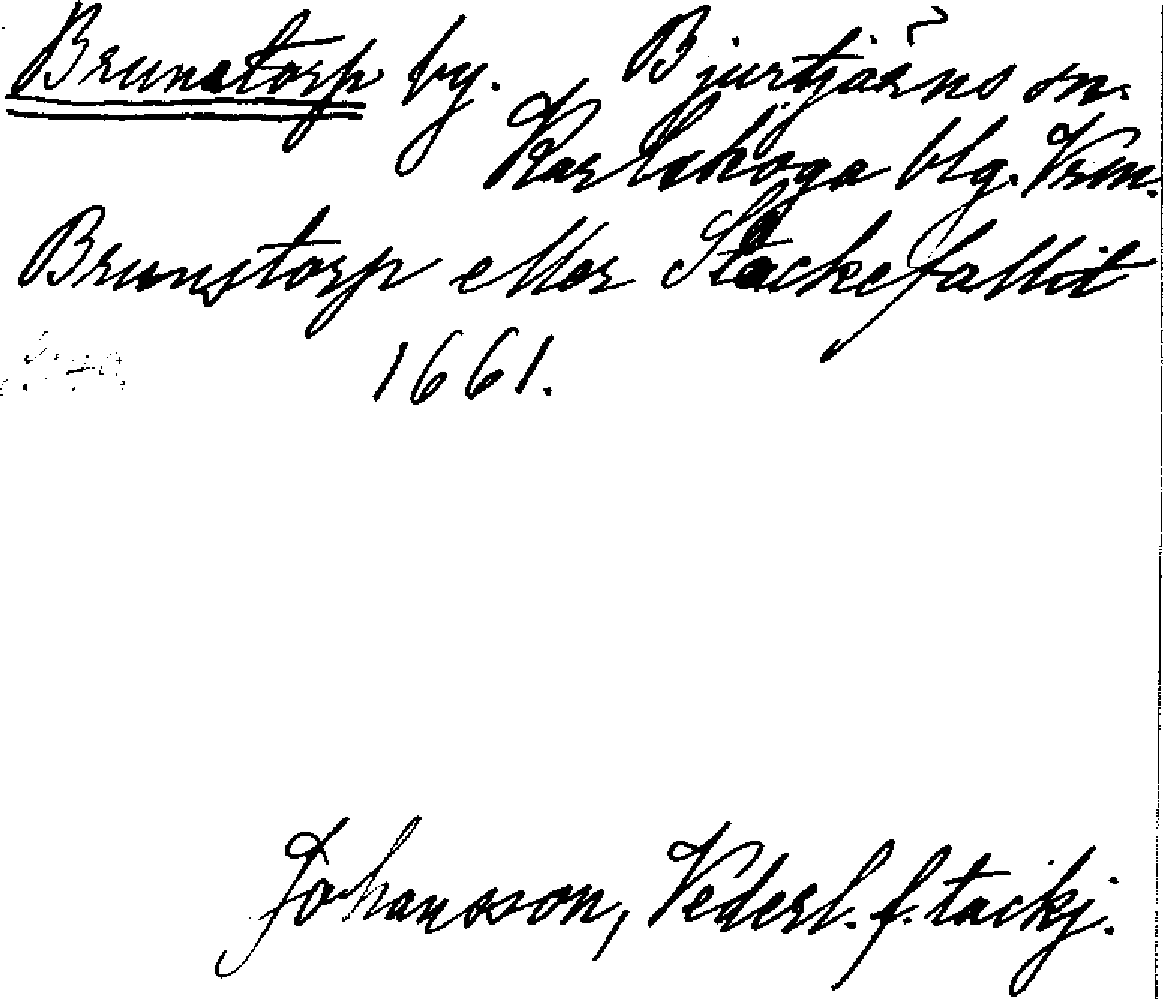 Brunstorp by. Bjurtjärns sn.
Karlskoga blg. Vrm.
Brunstorp eller Stackefallit
1661.
Johansson, Vederl. f. tackj.